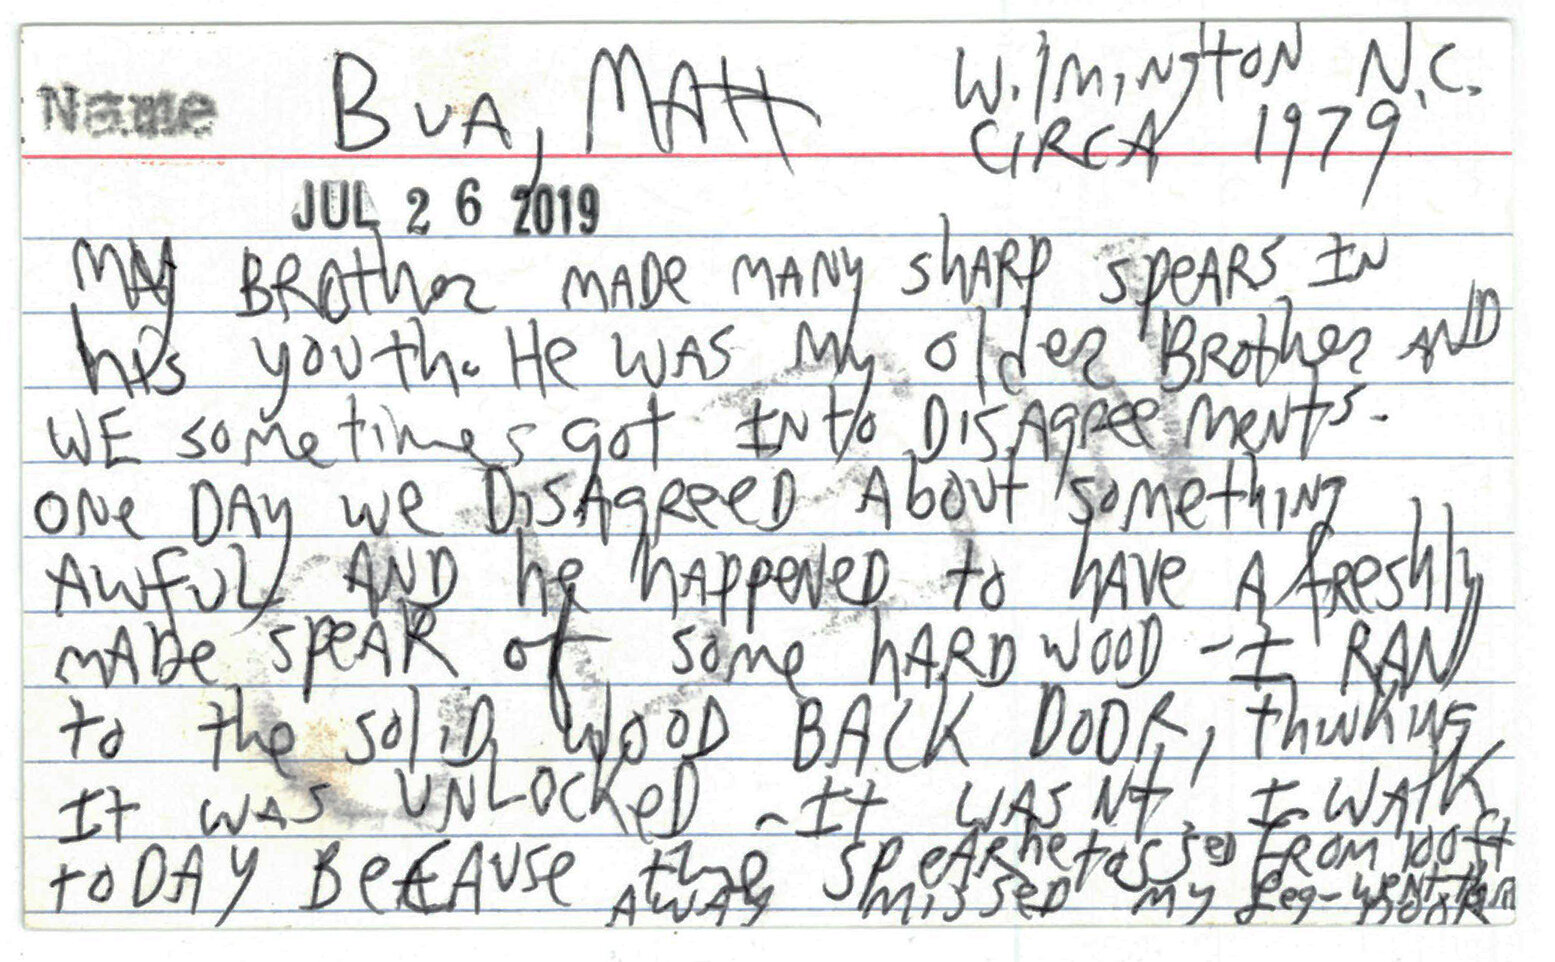 Name BUA, MATT Wilmington N.C.
CIRCA 1979
JUL 26 2019
MY BROther MADE MANY shARP speARS IN
his youth. He WAS My older BRother AND
WE sometimes got INto DISAgreements.
ONe DAY we DISAgReeD About something
AwfuL AND he hAppeNeD to hAVe A fReshly
mADe speAR of some hARD WOOD - I RAN
to the soliD WOOD BACK DOOR, thINKING
It WAS UNLOCKeD - It WASNt, I WAlK
toDAY BecAUse the speAR he tosseD FROM 100 ft
AWAY missED my Leg - went thru